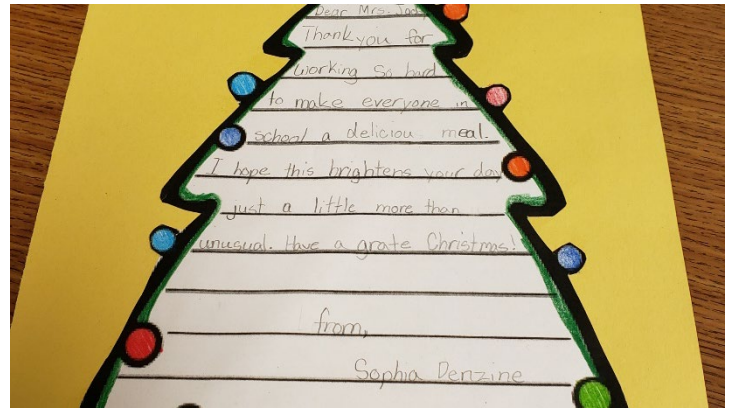 Dear Mrs.
Thank you for
working so hard
to make everyone in
school a deliciou meal.
I hope this brightens your day
just a little more than
unusual. Have a grate Christmas!
from,
Sophia Denzine